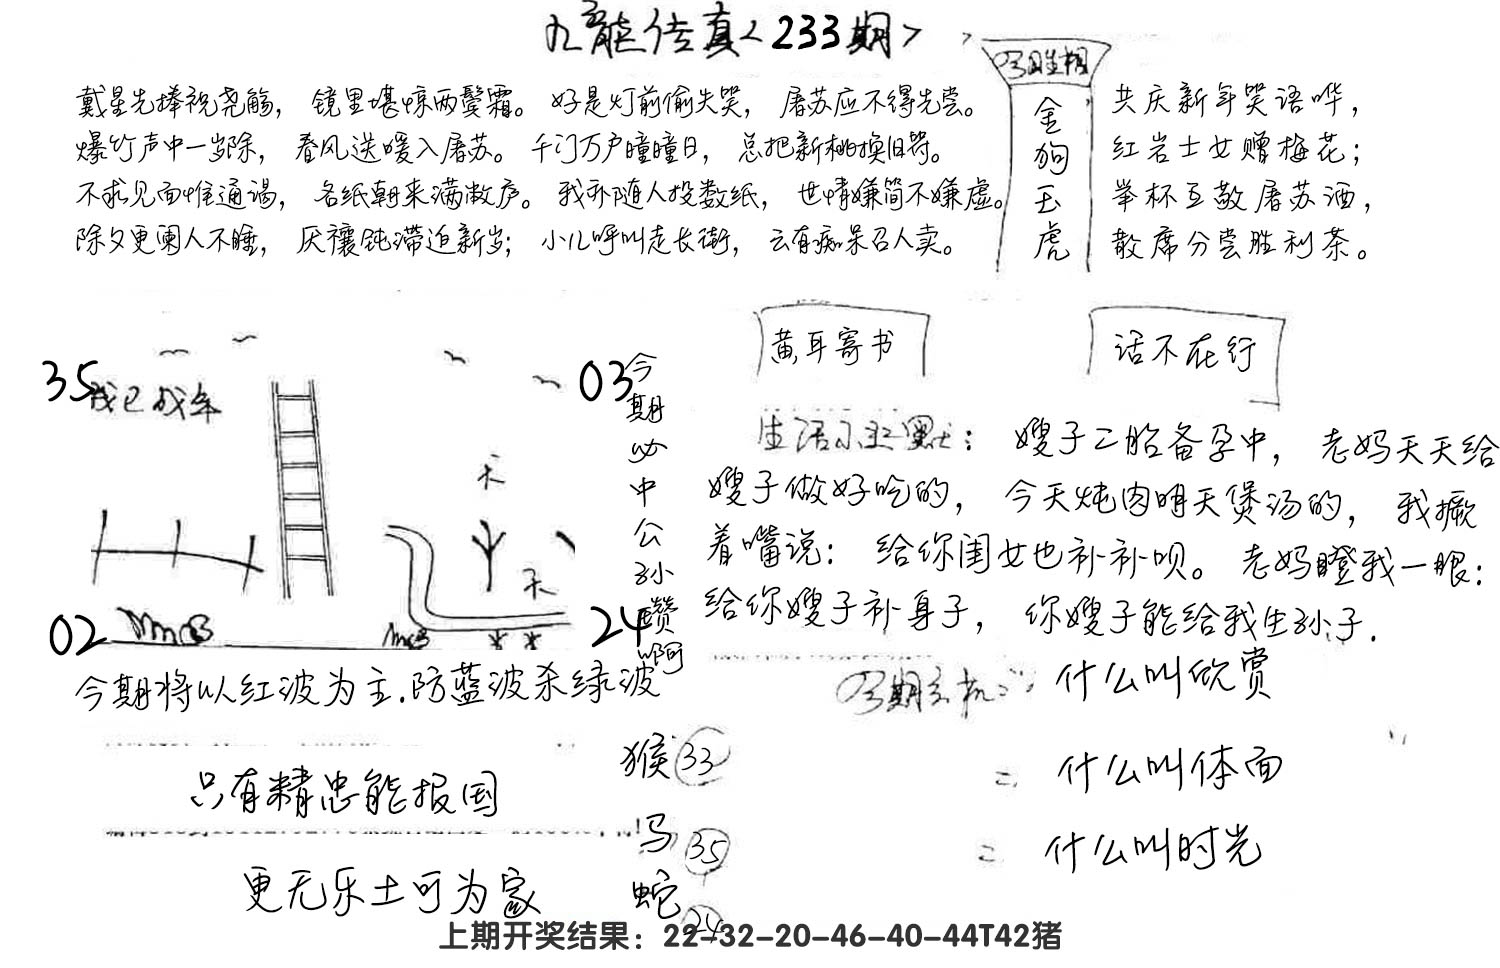 九龙传真<233期>
今期生相
金狗玉虎
戴星先捧祝尧觞，镜里堪惊两鬓霜。好是灯前偷失笑，屠苏应不得先尝。
爆竹声中一岁除，春风送暖入屠苏。千门万户曈曈日，总把新桃换旧符。
不求见面惟通谒，名纸朝来满敝庐。我亦随人投数纸，世情嫌简不嫌虚。
除夕更阑人不睡，厌禳钝滞迫新岁；小儿呼叫走长街，云有痴呆召人卖。
共庆新年笑语哗，
红岩士女赠梅花；
举杯互敬屠苏酒，
散席分尝胜利茶。
35
03
02
24
天
天
今期必中公孙赞啊
今期将以红波为主.防蓝波杀绿波
黄耳寄书
话不在行
生活小幽默：嫂子二胎备孕中，老妈天天给
嫂子做好吃的，今天炖肉明天煲汤的，我撅
着嘴说：给你闺女也补补呗。老妈瞪我一眼：
给你嫂子补身子，你嫂子能给我生孙子.
今期玄机: 什么叫欣赏
什么叫体面
什么叫时光
只有精忠能报国
更无乐土可为家
猴 33
马 35
蛇 24
上期开奖结果：22-32-20-46-40-44T42猪